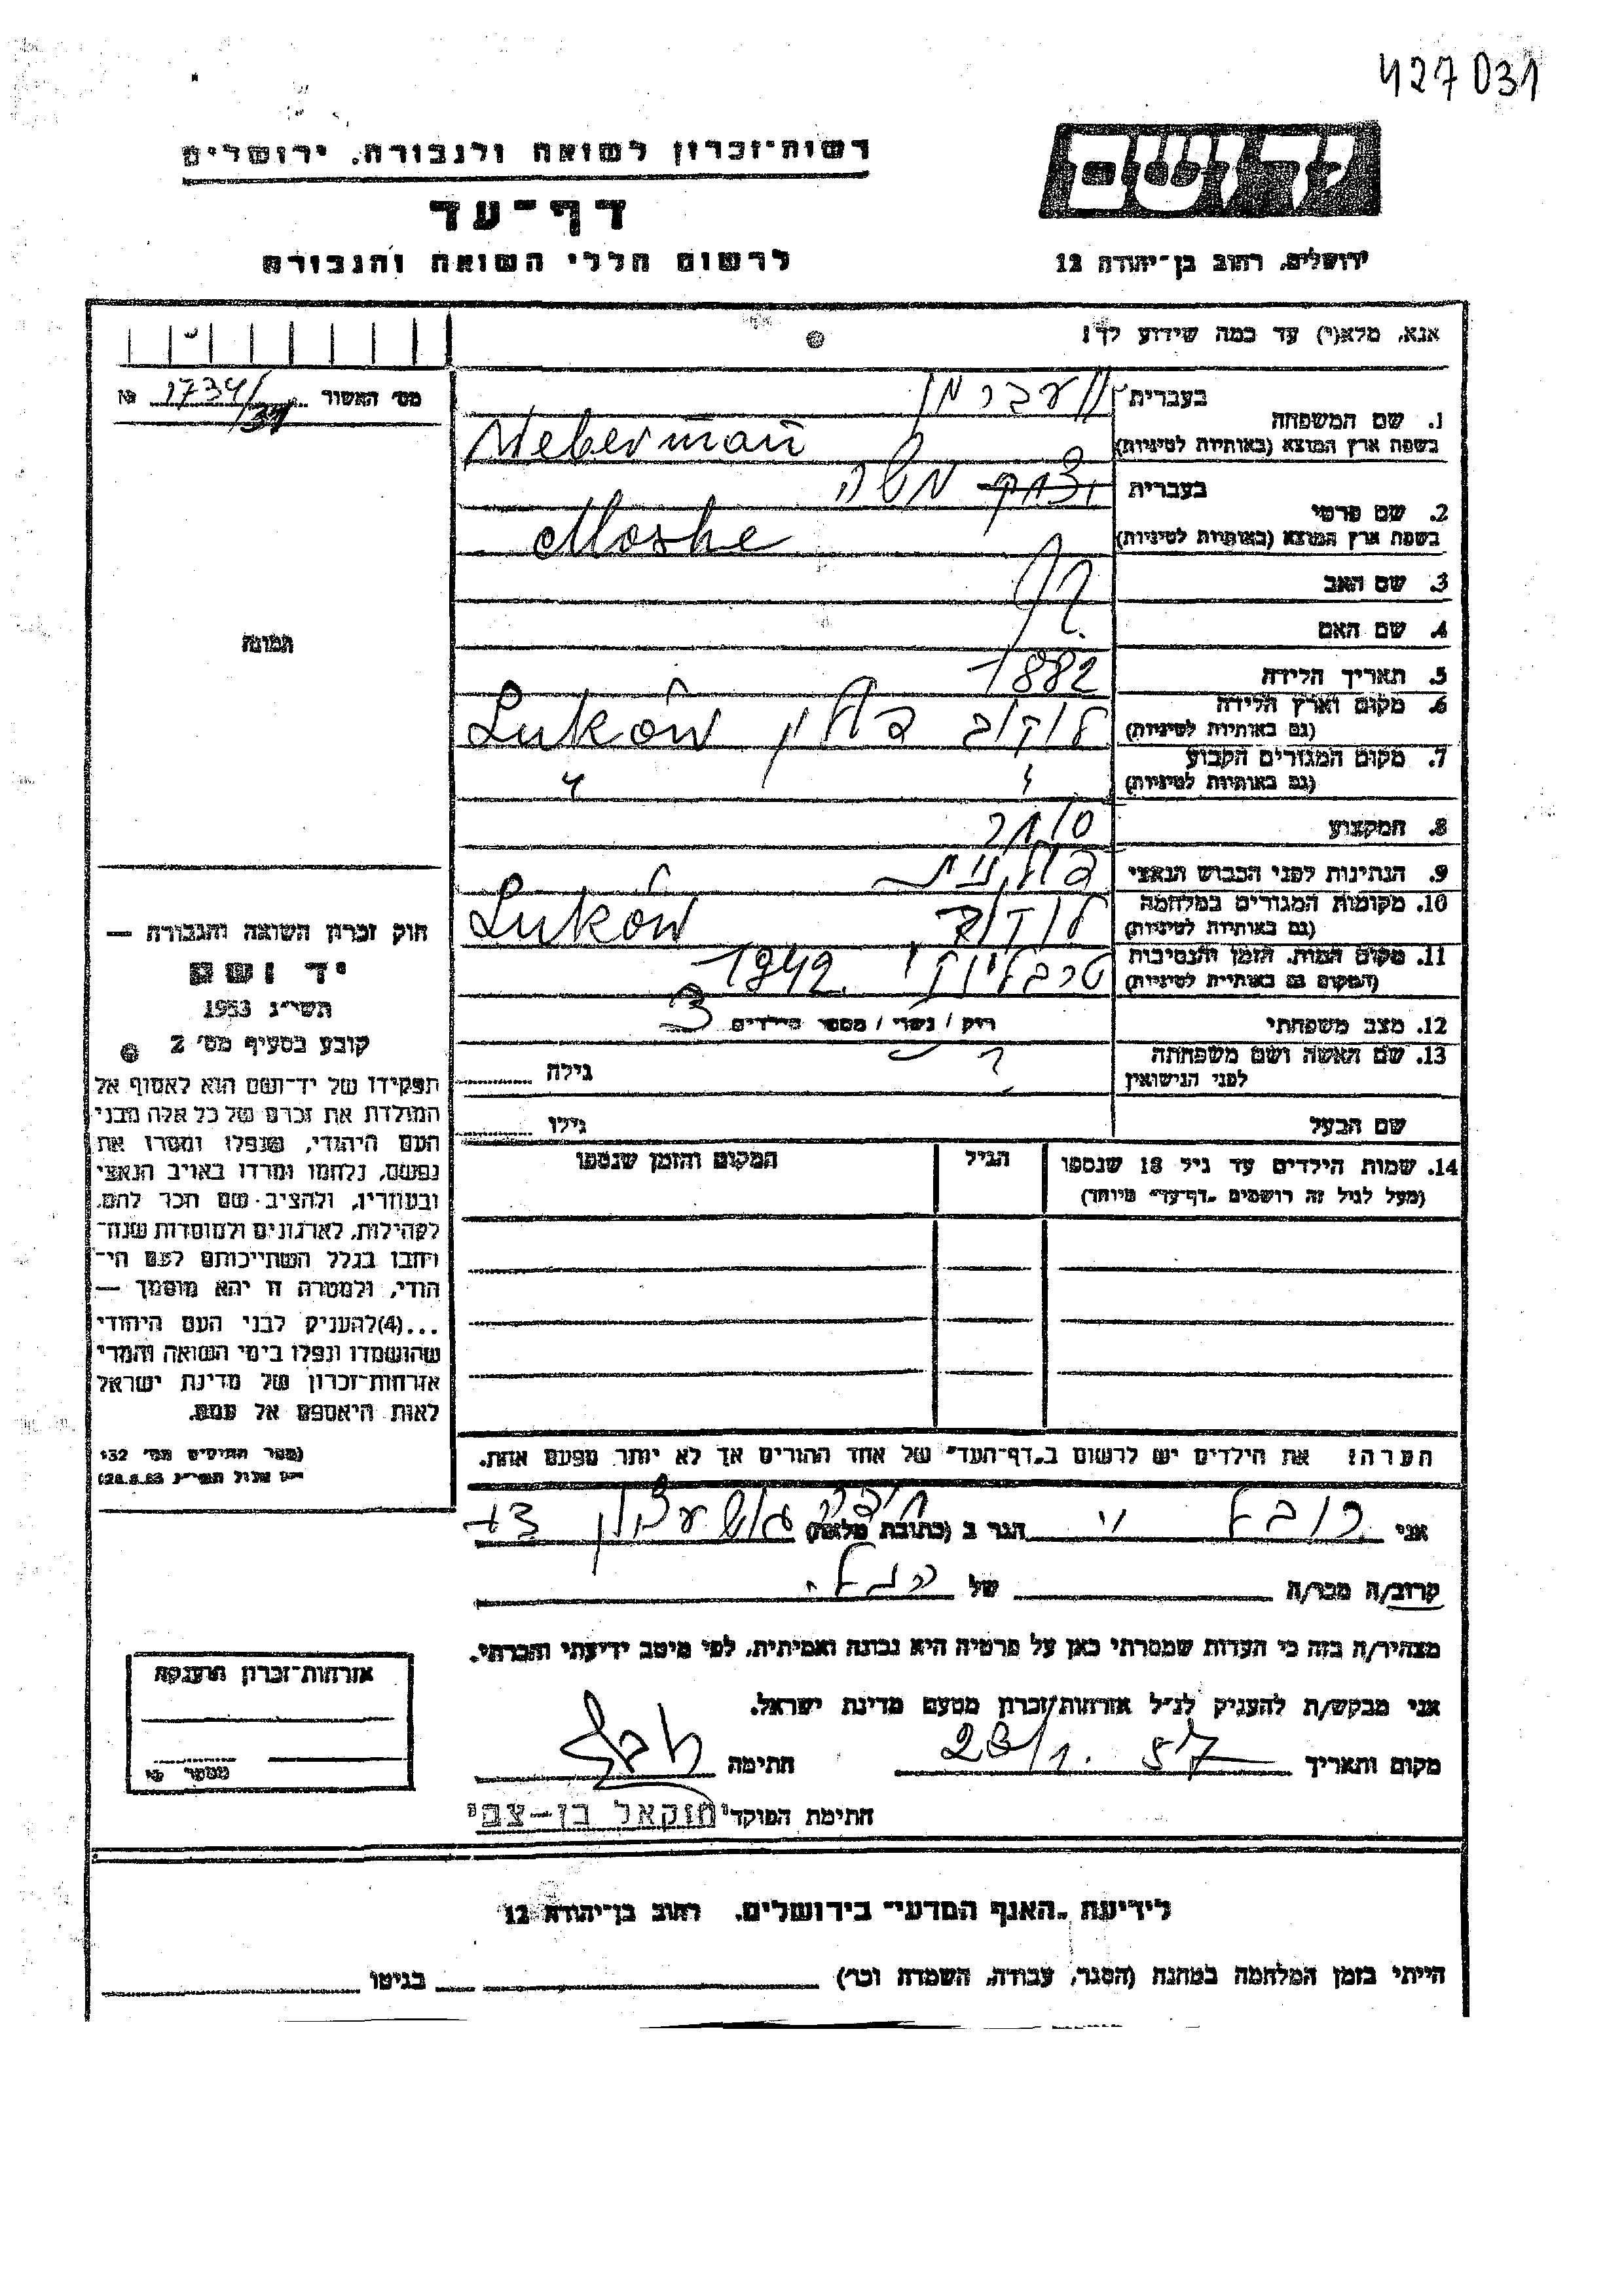 427031
רשות־זכרון לשואה ולגבורה, ירושלים
יד ושם
דף־עד
לרשום חללי השואה והגבורה
ירושלים, רחוב בן־יהודה 12
אנא, מלא(י) עד כמה שידוע לך!
מס׳ האשור 1734/31 №
1. שם המשפחה
בעברית וועברמן
בשפת ארץ המוצא (באותיות לטיניות) Weberman
2. שם פרטי
בעברית יצחק משה
בשפת ארץ המוצא (באותיות לטיניות) Moshe
3. שם האב
4. שם האם
5. תאריך הלידה 1882
6. מקום וארץ הלידה
(גם באותיות לטיניות) לוקוב פולין Łuków
7. מקום המגורים הקבוע
(גם באותיות לטיניות) " "
8. המקצוע
9. הנתינות לפני הכבוש הנאצי פולנית
10. מקומות המגורים במלחמה
(גם באותיות לטיניות) לוקוב Łuków
11. מקום המות, הזמן והנסיבות
(המקום גם באותיות לטיניות) טרבלינקי 1942
12. מצב משפחתי רוק / נשוי / מספר הילדים 3
13. שם האשה ושם משפחתה
לפני הנישואין ? גילה
שם הבעל גילו
14. שמות הילדים עד גיל 18 שנספו
(מעל לגיל זה רושמים "דף־עד" מיוחד)
הגיל
המקום והזמן שנספו
הערה: את הילדים יש לרשום ב"דף־העד" של אחד ההורים אך לא יותר מפעם אחת.
תמונה
חוק זכרון השואה והגבורה —
יד ושם
תשי״ג 1953
קובע בסעיף מס׳ 2
תפקידו של יד־ושם הוא לאסוף אל
המולדת את זכרם של כל אלה מבני
העם היהודי, שנפלו ומסרו את
נפשם, נלחמו ומרדו באויב הנאצי
ובעוזריו, ולהציב שם וזכר להם,
לקהילות, לארגונים ולמוסדות שנח־
רבו בגלל השתייכותם לעם הי־
הודי, ולמטרה זו יהא מוסמך —
...(4) להעניק לבני העם היהודי
שהושמדו ונפלו בימי השואה והמרי
אזרחות־זכרון של מדינת ישראל
לאות היאספם אל עמם.
(ספר החוקים מס׳ 132
י״ז אלול תשי״ג 28.8.53)
אני הגר ב (כתובת מלאה) חיפה
קרוב/ה מכר/ה של
מצהיר/ה בזה כי העדות שמסרתי כאן על פרטיה היא נכונה ואמיתית, לפי מיטב ידיעתי והכרתי.
אני מבקש/ת להעניק לנ״ל אזרחות/זכרון מטעם מדינת ישראל.
מקום ותאריך 23/1. 57 חתימה
חתימת הפוקד יחזקאל בן-צבי
אזרחות־זכרון הוענקה
מספר
לידיעת "האגף המדעי" בירושלים, רחוב בן־יהודה 12
הייתי בזמן המלחמה במחנה (הסגר, עבודה, השמדה וכו׳) בגיטו